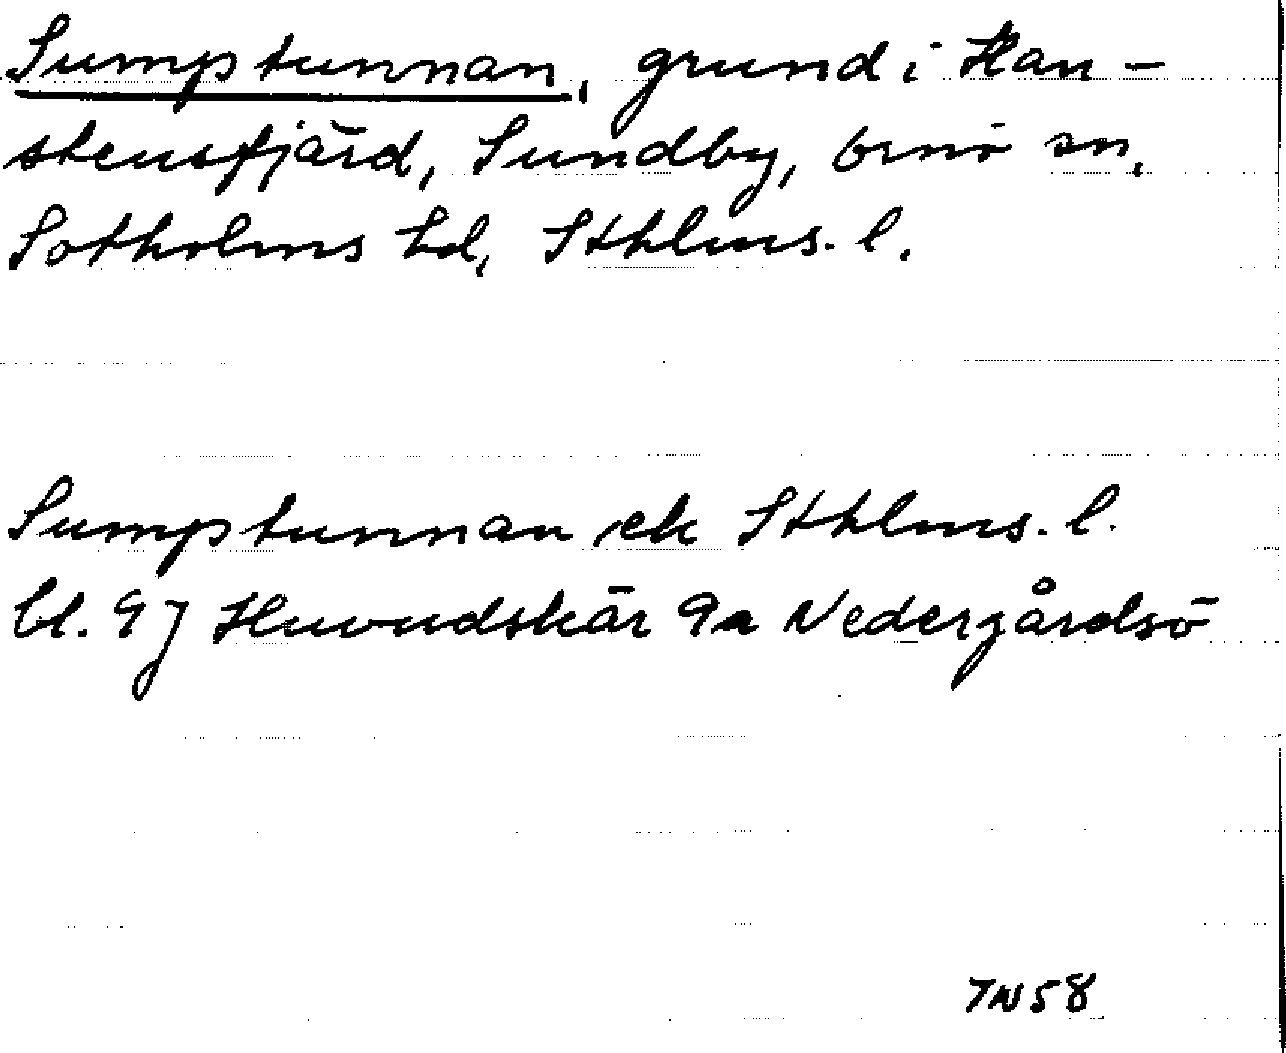 Sumptunnan, grund i Han-
stensfjärd, Sundby, Ornö sn,
Sotholms hd, Sthlms. l.
Sumptunnan ek Sthlms. l.
bl. 9 j Huvudskär 9a Nedergårdsö
7N58